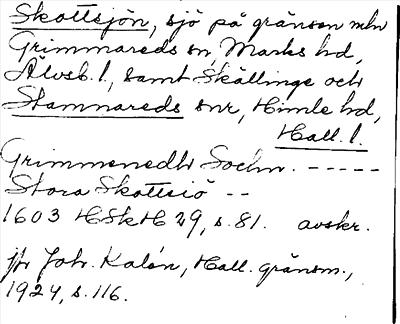 Skottsjön, sjö på gränsen mln
Grimmareds sn, Marks hd,
Älvsb. l., samt Skällinge och
Stamnareds snr, Himle hd,
Hall. l.
Grimmenedh Sochn. -----
Stora Skottsiö --
1603 HSkH 29, s. 81. avskr.
jfr Joh. Kalén, Hall. gränsm.,
1924, s. 116.